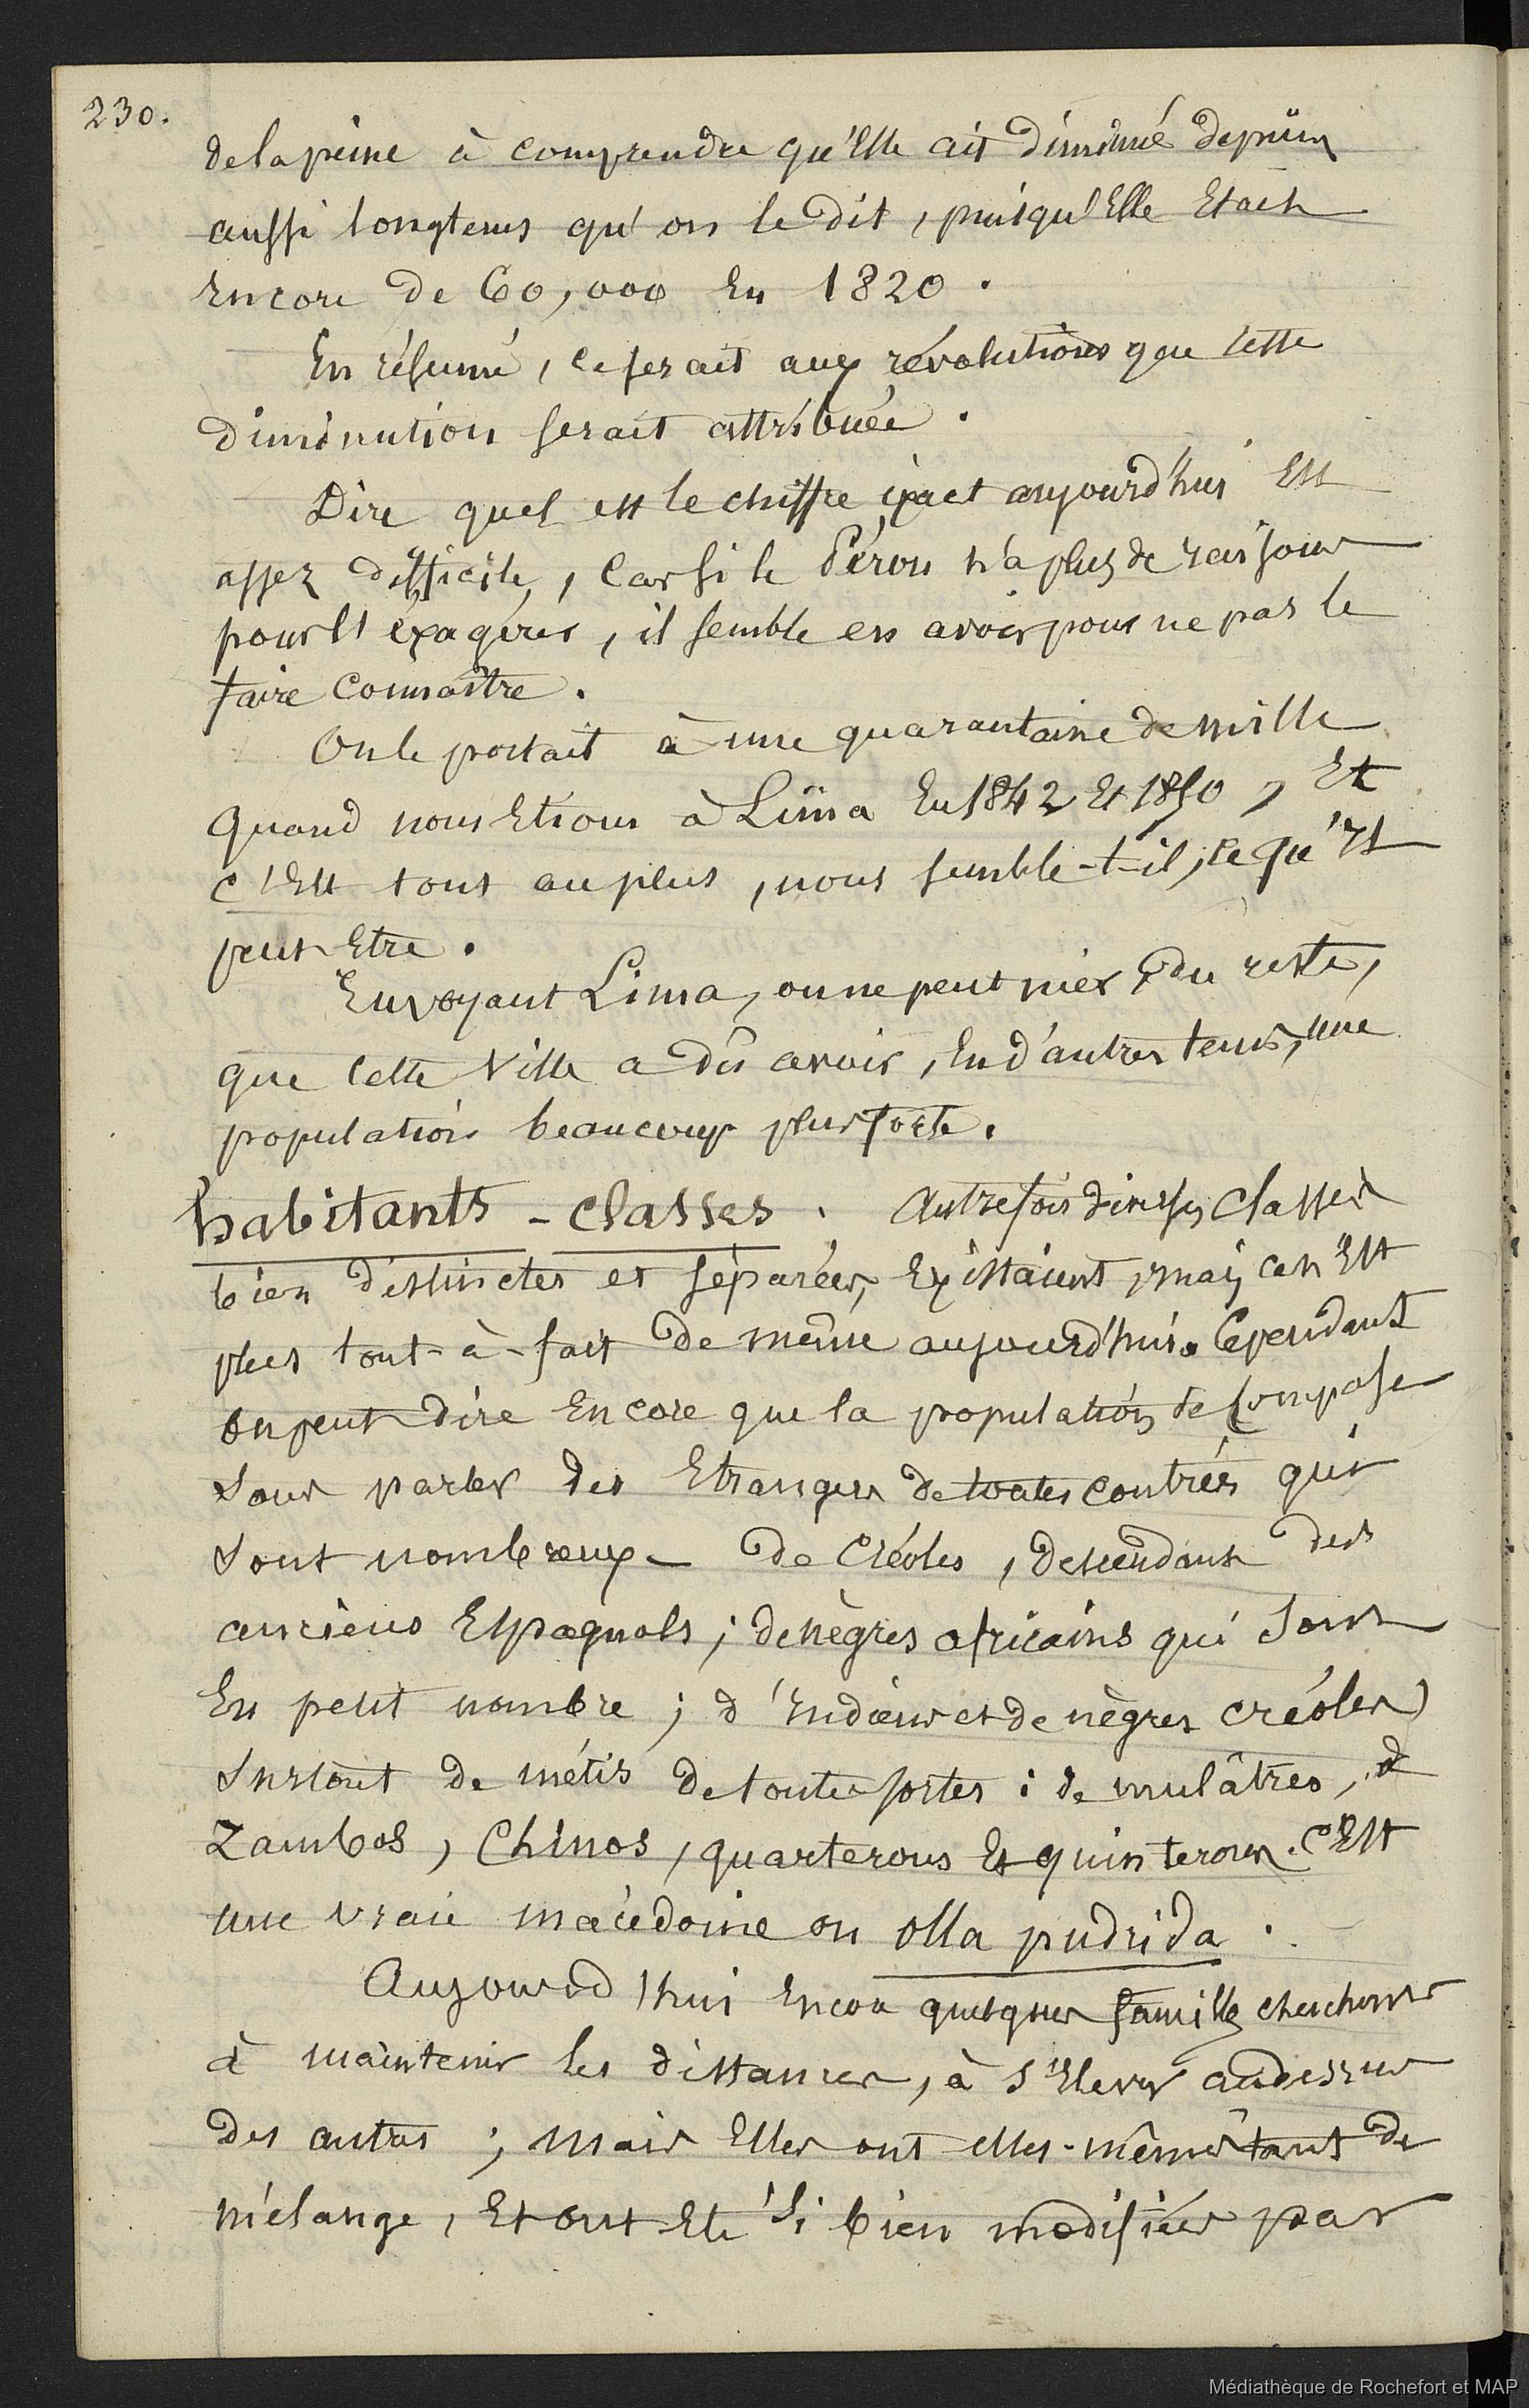 230.
de la peine à comprendre qu'Elle ait diminué depuis
aussi longtems qu'on le dit, puisqu'Elle Etait
Encore de 60,000 En 1820.
En résumé, ce serait aux révolutions que cette
diminution serait attribuée.
Dire quel est le chiffre éxact aujourd'hui Est
assez difficile, car si le Pérou n'a plus de raisons
pour l'éxagérer, il semble en avoir pour ne pas le
faire connaître.
On le portait à une quarantaine de mille
quand nous Etions à Lima En 1842 Et 1850, Et
c'Est tout au plus, nous semble-t-il, ce qu'il
peut Etre.
En voyant Lima, on ne peut nier, du reste,
que cette Ville a dû avoir, En d'autres tems, une
population beaucoup plus forte.
habitants - classes. Autrefois diverses classes
bien distinctes et séparées, Existaient, mais ce n'Est
plus tout-à-fait de même aujourd'hui. Cependant
on peut dire Encore que la population se compose
sans parler des Etrangers de toutes contrées qui
sont nombreux - de Créoles, descendants des
anciens Espagnols; de nègres africains qui sont
En petit nombre; d'Indiens et de nègres créoles;
surtout de métis de toutes sortes : de mulâtres, de
Zambos, Chinos, quarterons Et quinterons. C'Est
une vraie macédoine ou olla pudrida.
Aujourd'hui Encore quelques familles cherchent
à maintenir les distances, à s'Elever audessus
des autres; mais Elles ont elles-mêmes tant de
mélange, Et ont Eté si bien modifiées par
Médiathèque de Rochefort et MAP